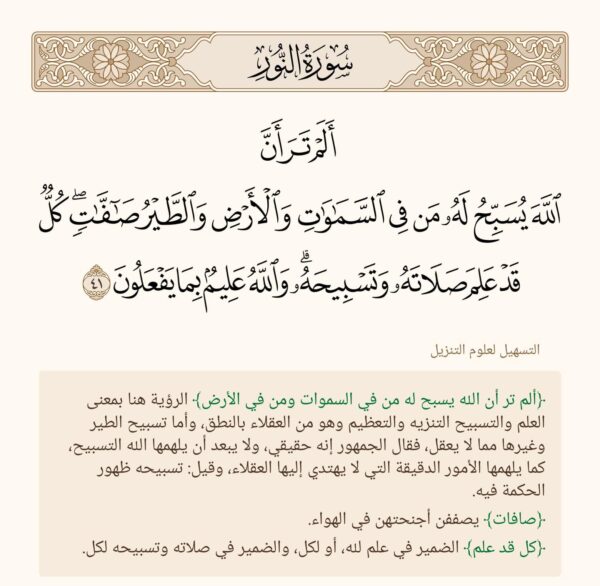 سُورَةُ النُّورِ
أَلَمْ تَرَ أَنَّ
ٱللَّهَ يُسَبِّحُ لَهُۥ مَن فِى ٱلسَّمَـٰوَٰتِ وَٱلْأَرْضِ وَٱلطَّيْرُ صَـٰٓفَّـٰتٍۢ ۖ كُلٌّۭ
قَدْ عَلِمَ صَلَاتَهُۥ وَتَسْبِيحَهُۥ ۗ وَٱللَّهُ عَلِيمٌۢ بِمَا يَفْعَلُونَ ٤١
التسهيل لعلوم التنزيل
﴿ألم تر أن الله يسبح له من في السموات ومن في الأرض﴾ الرؤية هنا بمعنى
العلم والتسبيح التنزيه والتعظيم وهو من العقلاء بالنطق، وأما تسبيح الطير
وغيرها مما لا يعقل، فقال الجمهور إنه حقيقي، ولا يبعد أن يلهمها الله التسبيح،
كما يلهمها الأمور الدقيقة التي لا يهتدي إليها العقلاء، وقيل: تسبيحه ظهور
الحكمة فيه.
﴿صافات﴾ يصففن أجنحتهن في الهواء.
﴿كل قد علم﴾ الضمير في علم لله، أو لكل، والضمير في صلاته وتسبيحه لكل.